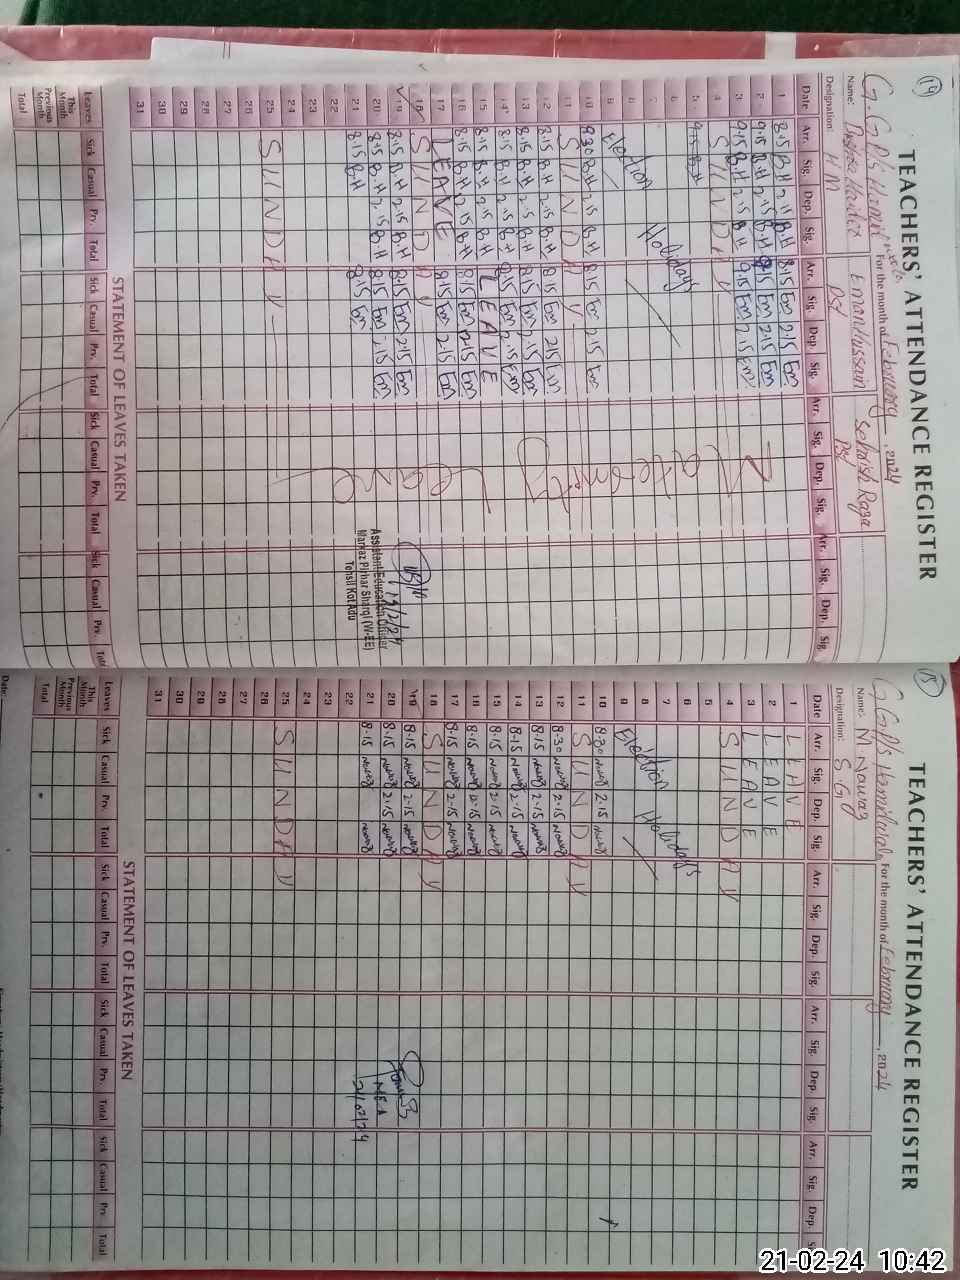 14
TEACHERS' ATTENDANCE REGISTER
For the month of February, 2024
Name: Eman Hussain Sehrish Raza
Designation: HM PST PST
Date Arr. Sig. Dep. Sig. Arr. Sig. Dep. Sig. Arr. Sig. Dep. Sig. Arr. Sig. Dep. Sig.
1 8.15 B.H 2.15 B.H 8.15 Em 2.15 Em
2 9.15 B.H 2.15 B.H 8.15 Em 2.15 Em
3 9.15 B.H 2.15 B.H 9.15 Em 2.15 Em
4 SUNDAY
5 9.15 B.H
6
7
8
9 Election Holidays
10 8:30 B.H 2.15 B.H 8.15 Em 2.15 Em
11 SUNDAY
12 8.15 B.H 2.15 B.H 8.15 Em 2.15 Em
13 8.15 B.H 2.15 B.H 8.15 Em 2.15 Em
14 8.15 B.H 2.15 B.H 8.15 Em 2.15 Em
15 8.15 B.H 2.15 B.H LEAVE
16 8.15 B.H 2.15 B.H 8.15 Em 2.15 Em
17 LEAVE 8.15 Em 2.15 Em
18 SUNDAY
19 8.15 B.H 2.15 B.H 8.15 Em 2.15 Em
20 8.15 B.H 2.15 B.H 8.15 Em 2.15 Em
21 8.15 B.H 8.15 Em
22
23
24
25 SUNDAY
26
27
28
29
30
31
Maternity Leave
19/2/24
Assistant Education Officer
Markaz Pirhar Sharqi (W-EE)
Tehsil Kot Adu
STATEMENT OF LEAVES TAKEN
Leaves Sick Casual Prv. Total Sick Casual Prv. Total Sick Casual Prv. Total Sick Casual Prv. Total
This Month
Previous Month
Total
15
TEACHERS' ATTENDANCE REGISTER
For the month of February, 2024
Name: M Nawaz
Designation: S.G
Date Arr. Sig. Dep. Sig. Arr. Sig. Dep. Sig. Arr. Sig. Dep. Sig. Arr. Sig. Dep. S
1 LEAVE
2 LEAVE
3 LEAVE
4 SUNDAY
5
6
7
8
9 Election Holidays
10 8:30 Nawaz 2.15 Nawaz
11 SUNDAY
12 8:30 Nawaz 2.15 Nawaz
13 8.15 Nawaz 2.15 Nawaz
14 8.15 Nawaz 2.15 Nawaz
15 8.15 Nawaz 2.15 Nawaz
16 8.15 Nawaz 2.15 Nawaz
17 8.15 Nawaz 2.15 Nawaz
18 SUNDAY
19 8.15 Nawaz 2.15 Nawaz
20 8.15 Nawaz 2.15 Nawaz
21 8.15 Nawaz
22
23
24
25 SUNDAY
26
27
28
29
30
31
MEA
21/02/24
STATEMENT OF LEAVES TAKEN
Leaves Sick Casual Prv. Total Sick Casual Prv. Total Sick Casual Prv. Total Sick Casual Prv. Total
This Month
Previous Month
Total
Date:
21-02-24 10:42